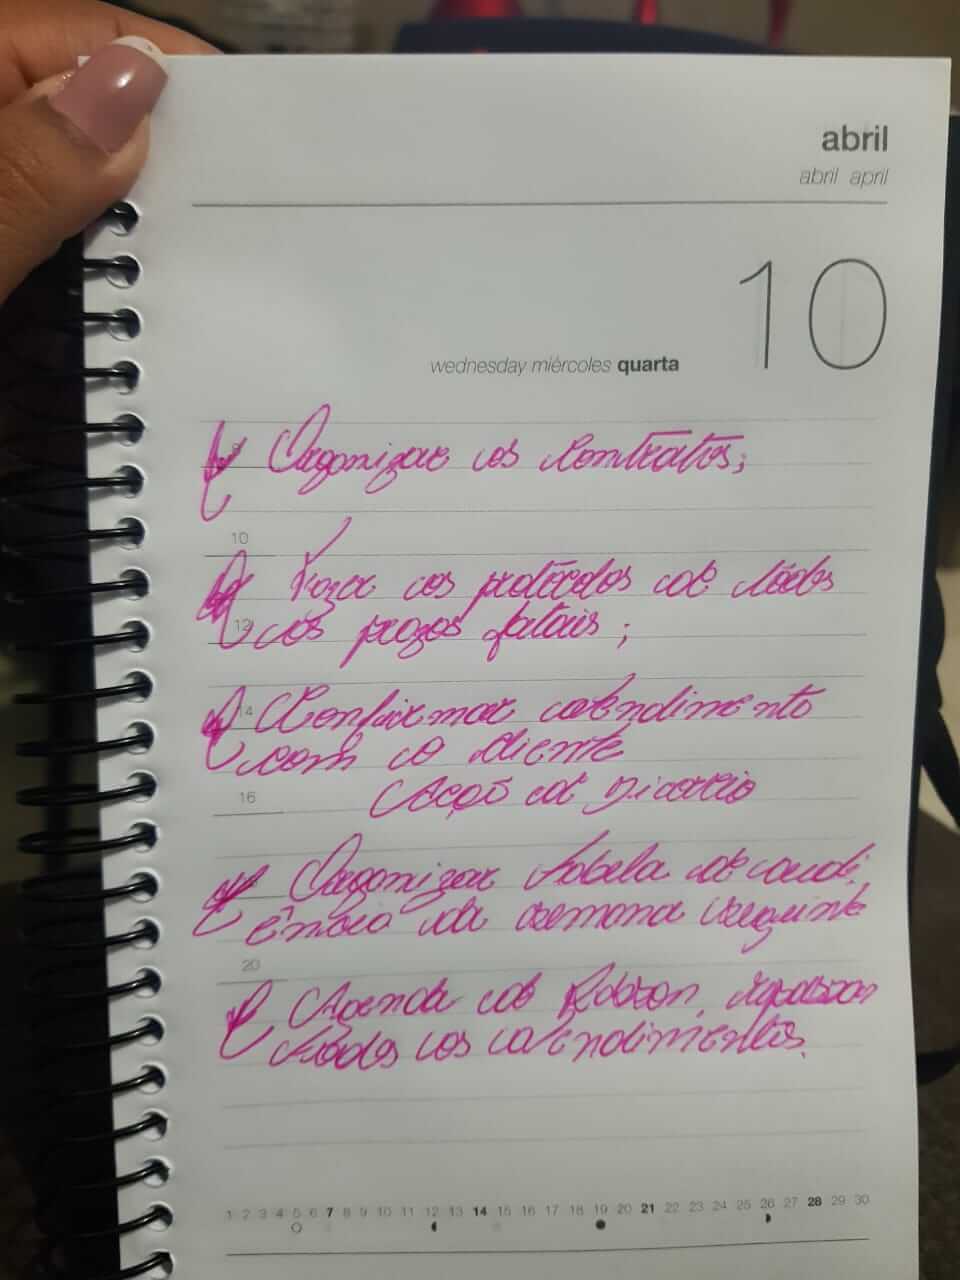 abril
abril april
10
wednesday miércoles quarta
Organizar os contratos;
10
Fazer os protocolos de todos
12
os prazos fatais;
14
Confirmar atendimento
com o cliente
16
Ação de Divorcio
Organizar tabela de audi
ência da semana seguinte
20
Agenda de Robson, repassar
todos os atendimentos.
1 2 3 4 5 6 7 8 9 10 11 12 13 14 15 16 17 18 19 20 21 22 23 24 25 26 27 28 29 30